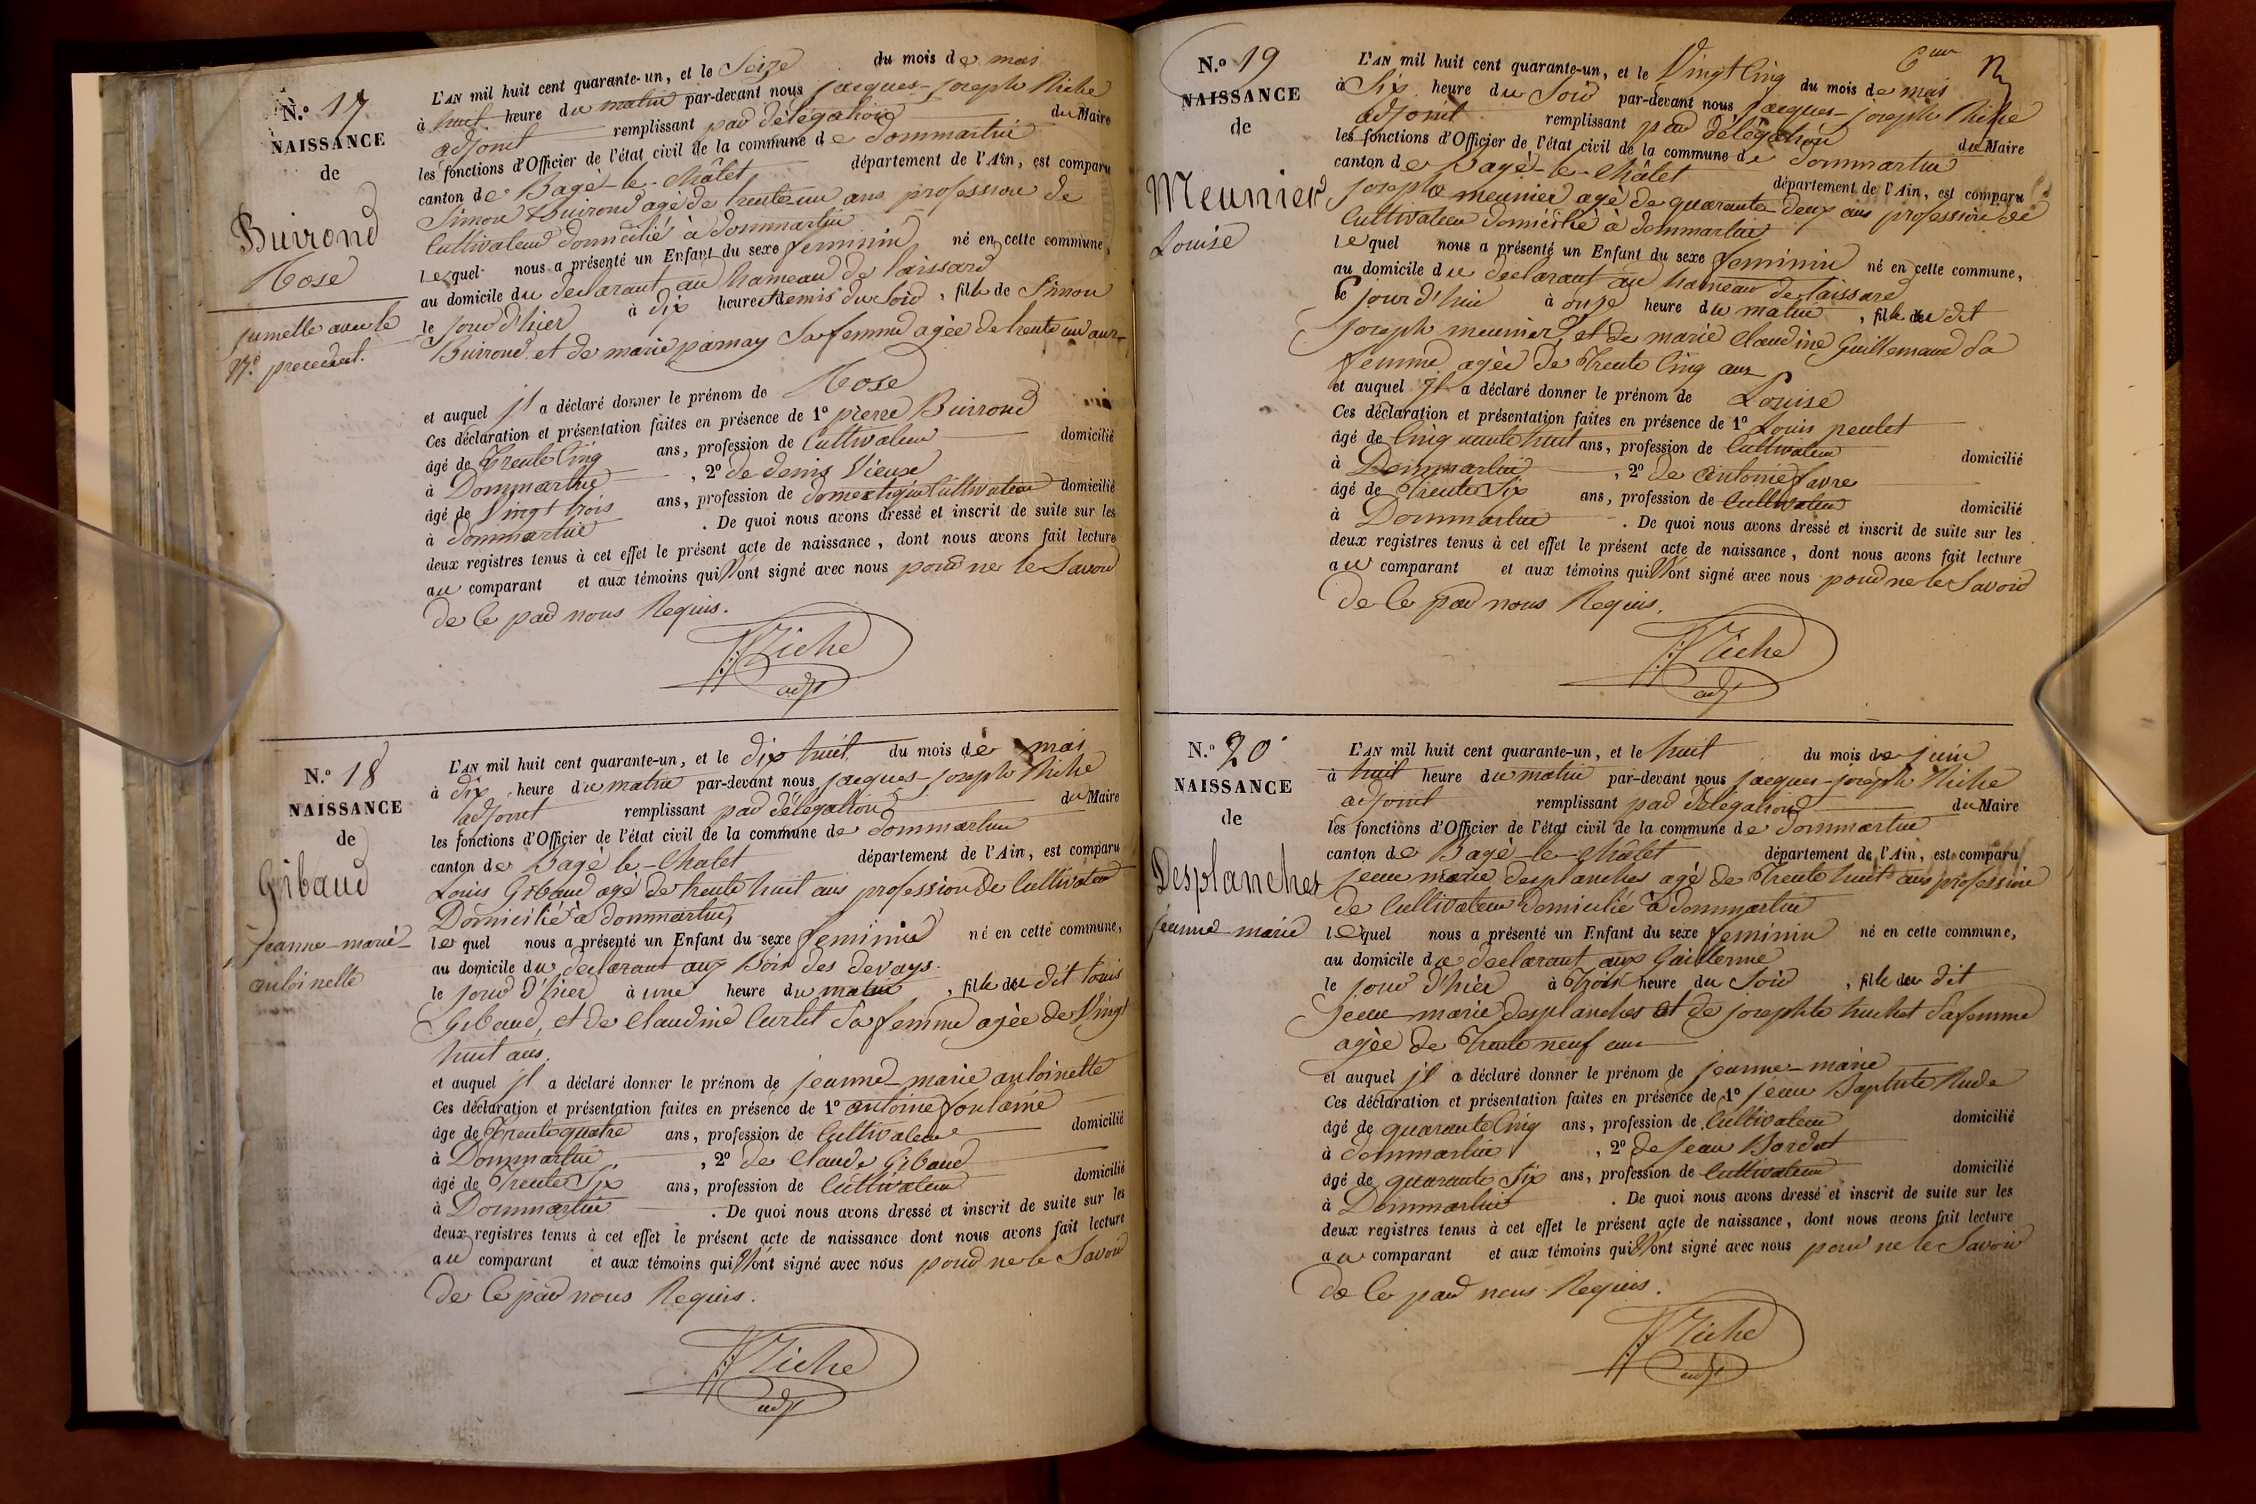 N.º 17
NAISSANCE
de
Buirond
Rose
jumelle avec le
N.º precedent.
L'AN mil huit cent quarante-un, et le Seize du mois de mai
à huit heure du matin par-devant nous jacques-joseph Riche
adjoint remplissant par délégation du Maire
les fonctions d'Officier de l'état civil de la commune de dommartin
canton de Bagé-le-Châtel département de l'Ain, est comparu
Simon Buirond agé de trente un ans profession de
Cultivateur domicilié à dommartin
lequel nous a présenté un Enfant du sexe feminin né en cette commune,
au domicile du declarant au hameau de laissard
le jour d'hier à dix heure et demis du soir, fille de Simon
Buirond et de marie parnay Sa femme agée de trente un ans
et auquel jl a déclaré donner le prénom de Rose
Ces déclaration et présentation faites en présence de 1º pierre Buirond
âgé de Trente Cinq ans, profession de Cultivateur domicilié
à Dommartin, 2º de denis Vieux
âgé de Vingt trois ans, profession de domestique Cultivateur domicilié
à dommartin. De quoi nous avons dressé et inscrit de suite sur les
deux registres tenus à cet effet le présent acte de naissance, dont nous avons fait lecture
au comparant et aux témoins qui N'ont signé avec nous pour ne le Savoir
de Ce par nous Requis.
JJ Riche
adjt
N.º 18
NAISSANCE
de
Gibaud
jeanne-marie-
antoinette
L'AN mil huit cent quarante-un, et le dix huit du mois de mai
à dix heure du matin par-devant nous jacques-joseph Riche
adjoint remplissant par délégation du Maire
les fonctions d'Officier de l'état civil de la commune de dommartin
canton de Bagé le-Chatel département de l'Ain, est comparu
Louis Gibaud agé de trente huit ans profession de Cultivateur
Domicilié à dommartin,
lequel nous a présenté un Enfant du sexe feminin né en cette commune,
au domicile du declarant aux Bois des devays.
le jour d'hier à une heure du matin, fille du dit louis
Gibaud, et de Claudine Curlet Sa femme agée de Vingt
huit ans.
et auquel jl a déclaré donner le prénom de jeanne-marie antoinette
Ces déclaration et présentation faites en présence de 1º antoine fontaine
âge de Trente quatre ans, profession de Cultivateur domicilié
à Dommartin, 2º de Claude Gibaud
âgé de Trente Six ans, profession de Cultivateur domicilié
à Dommartin. De quoi nous avons dressé et inscrit de suite sur les
deux registres tenus à cet effet le présent acte de naissance dont nous avons fait lecture
au comparant et aux témoins qui N'ont signé avec nous pour ne le Savoir
de Ce par nous Requis.
JJ Riche
adjt
N.º 19
NAISSANCE
de
Meunier
Louise
L'AN mil huit cent quarante-un, et le Vingt Cinq du mois de mai
à Six heure du Soir par-devant nous jacques-joseph Riche
adjoint remplissant par délégation du Maire
les fonctions d'Officier de l'état civil de la commune de dommartin
canton de Bagé-le-Châtel département de l'Ain, est comparu
joseph meunier agé de quarante-deux ans profession de
Cultivateur domicilié à dommartin
lequel nous a présenté un Enfant du sexe feminin né en cette commune,
au domicile du declarant au hameau de laissard
le jour d'hui à onze heure du matin, fille du dit
joseph meunier et de marie Claudine Guillemaud Sa
femme agée de Trente Cinq ans
et auquel jl a déclaré donner le prénom de Louise
Ces déclaration et présentation faites en présence de 1º Louis peulet
âgé de Cinquante huit ans, profession de Cultivateur domicilié
à Dommartin, 2º de antoine favre
âgé de Trente Six ans, profession de Cultivateur domicilié
à Dommartin. De quoi nous avons dressé et inscrit de suite sur les
deux registres tenus à cet effet le présent acte de naissance, dont nous avons fait lecture
au comparant et aux témoins qui N'ont signé avec nous pour ne le Savoir
de Ce par nous Requis.
JJ Riche
adjt
N.º 20
NAISSANCE
de
Desplanches
jeanne-marie
L'AN mil huit cent quarante-un, et le huit du mois de juin
à huit heure du matin par-devant nous jacques-joseph Riche
adjoint remplissant par délégation du Maire
les fonctions d'Officier de l'état civil de la commune de dommartin
canton de Bagé-le-Châtel département de l'Ain, est comparu
jean marie desplanches agé de Trente huit ans profession
de Cultivateur domicilié à dommartin
lequel nous a présenté un Enfant du sexe feminin né en cette commune,
au domicile du declarant aux Guillerme
le jour d'hier à Trois heure du Soir, fille du dit
jean marie desplanches et de josephte huchet Sa femme
agée de Trente neuf ans
et auquel jl a déclaré donner le prénom de jeanne-marie
Ces déclaration et présentation faites en présence de 1º jean Baptiste Rude
âgé de quarante Cinq ans, profession de Cultivateur domicilié
à dommartin, 2º de jean Bordat
âgé de quarante Six ans, profession de Cultivateur domicilié
à Dommartin. De quoi nous avons dressé et inscrit de suite sur les
deux registres tenus à cet effet le présent acte de naissance, dont nous avons fait lecture
au comparant et aux témoins qui N'ont signé avec nous pour ne le Savoir
de Ce par nous Requis.
JJ Riche
adjt